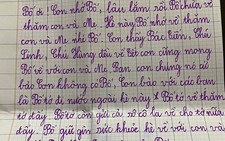 Bố ơi! Con nhớ Bố, lâu lắm rồi Bố chưa về
thăm con và Mẹ. Hè này Bố nhớ về thăm
con và Mẹ nhé Bố. Con thấy Bác Biên, Chú
Linh, Chú Hùng đều về Tết con cũng mong
Bố về với con và Mẹ. Bạn con chúng nó cứ
bảo Con không có Bố, Con bảo với các bạn
là Bố tớ đi nước ngoài hè này Bố tớ về thăm
tớ đấy. Bố tớ còn gửi cả ô tô về cho tớ nữa
đấy. Bố giữ gìn sức khỏe hè về với con và